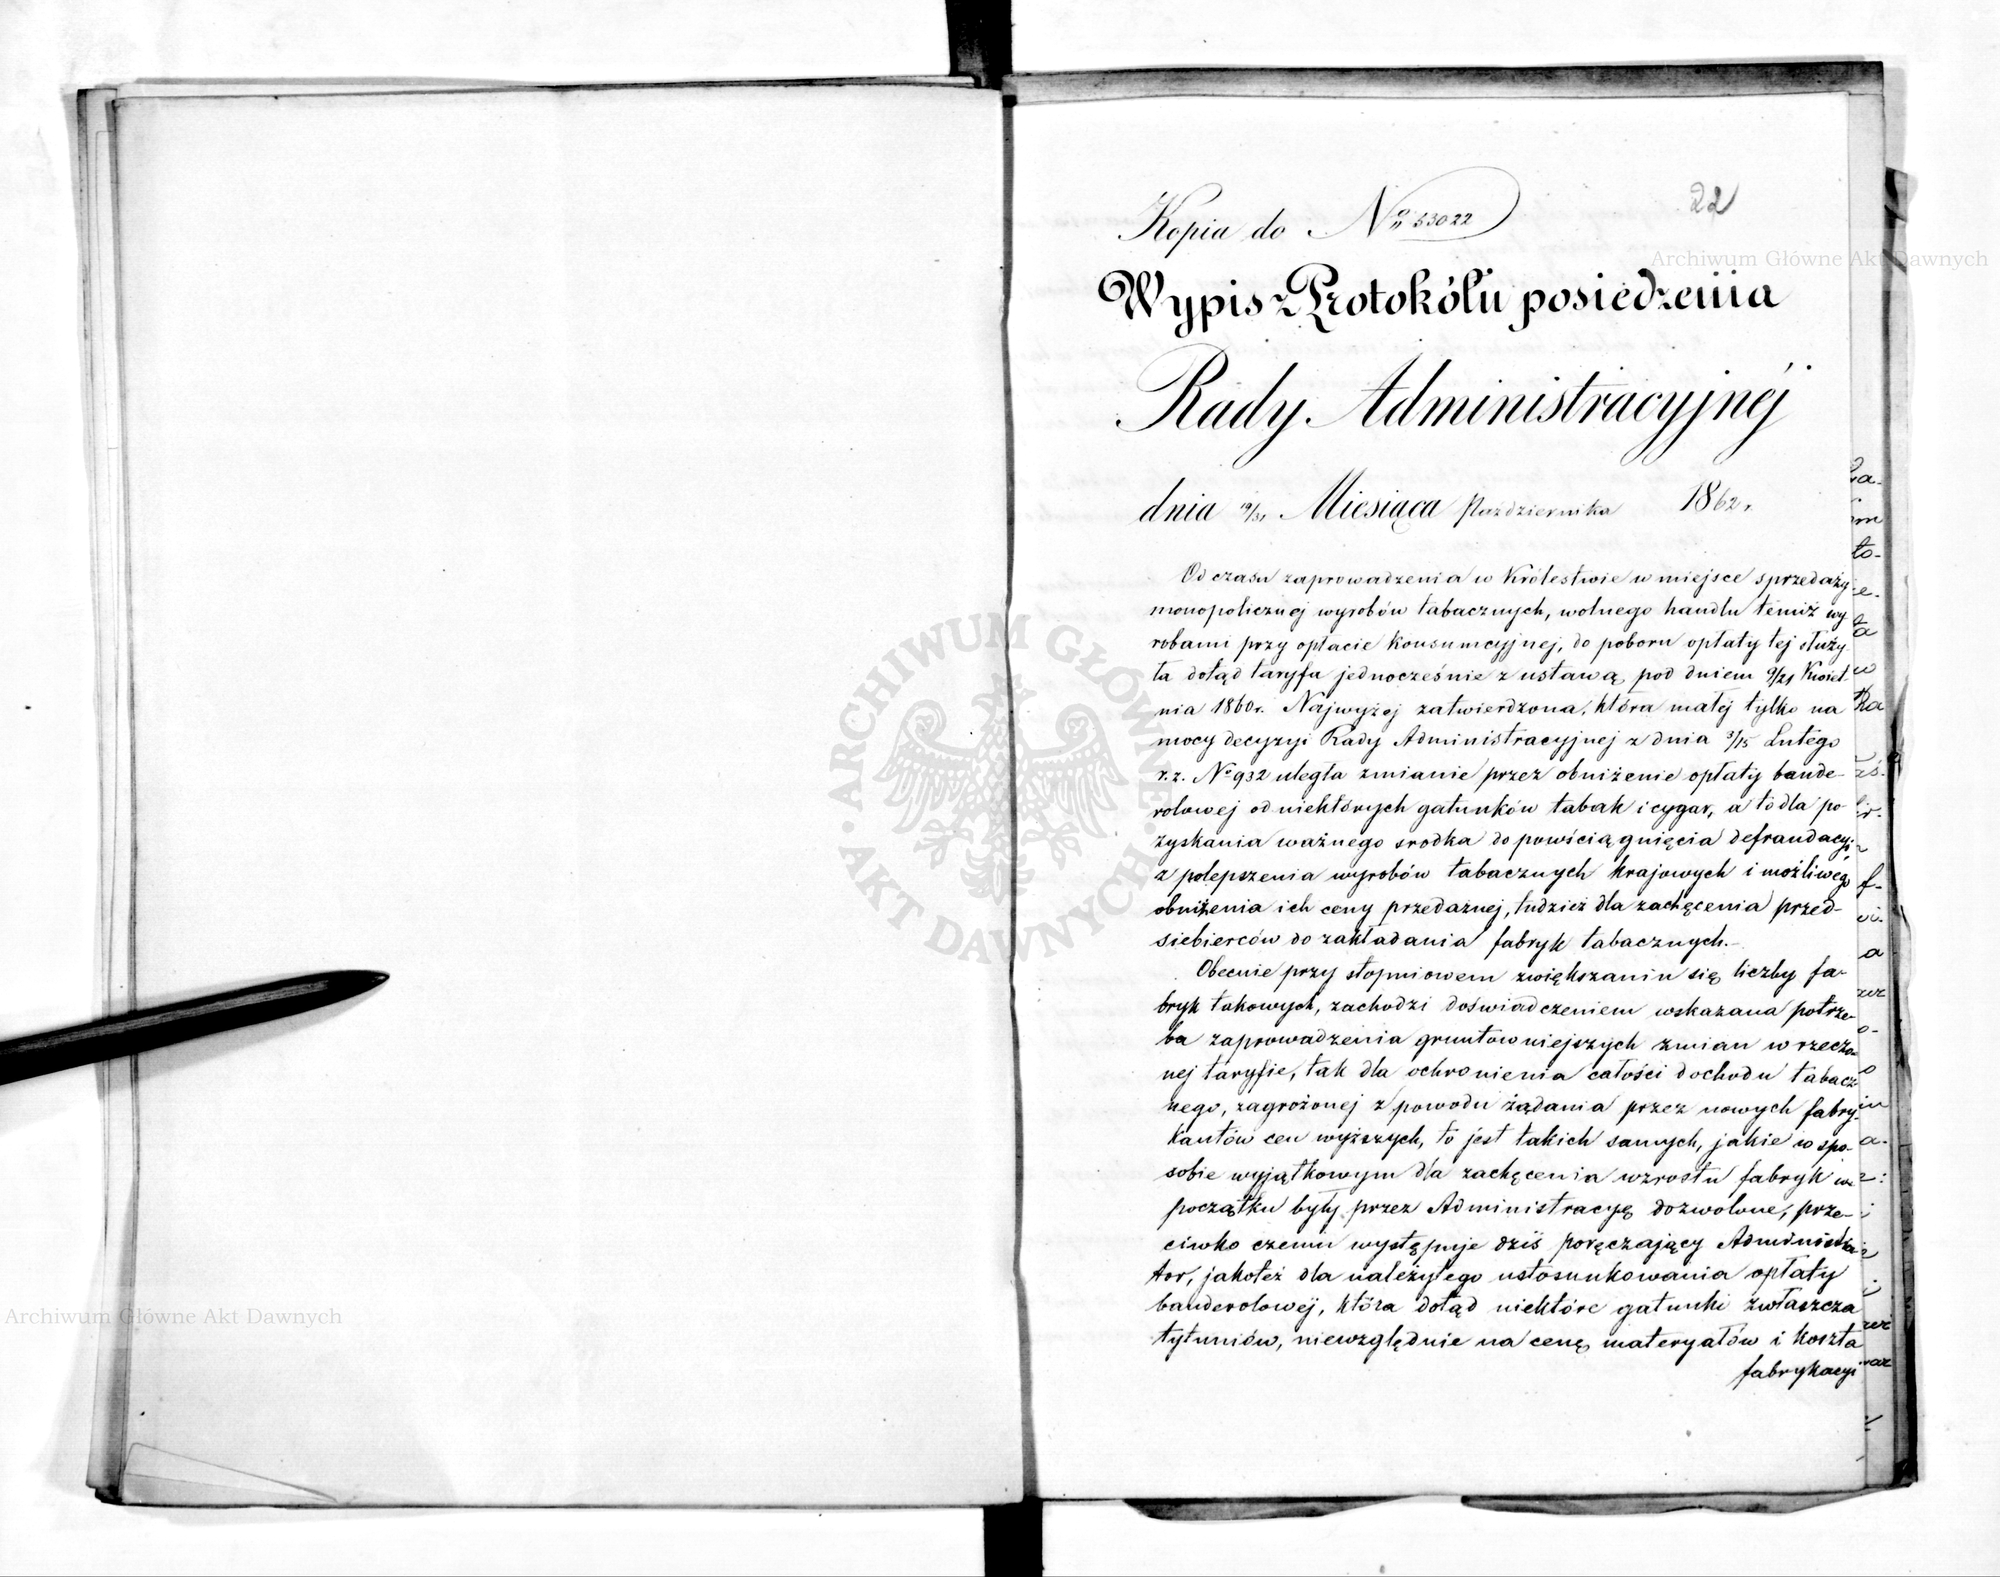 22
Kopia do No 53022
Wypis z Protokółu posiedzenia
Rady Administracyjnéj
dnia 19/31 Miesiąca Października 1862.
Od czasu zaprowadzenia w Królestwie w miejsce sprzedaży
monopolicznej wyrobów tabacznych, wolnego handlu temiż wy
robami przy opłacie konsumcyjnej, do poboru opłaty tej służy
ła dotąd taryfa jednocześnie z ustawą pod dniem 9/21 Kwiet-
nia 1860r. Najwyżej zatwierdzona, która małej tylko na
mocy decyzyi Rady Administracyjnej z dnia 3/15 Lutego
r.z. No 932 uległa zmianie przez obniżenie opłaty bande-
rolowej od niektórych gatunków tabak i cygar, a to dla po-
zyskania ważnego srodka do powściągnięcia defraudacyi
z polepszenia wyrobów tabacznych krajowych i możliwego
obniżenia ich ceny przedażnej, tudzież dla zachęcenia przed-
siebierców do zakładania fabryk tabacznych.-
Obecnie przy stopniowem zwiększaniu się liczby fa-
bryk takowych, zachodzi doświadczeniem wskazana potrze-
ba zaprowadzenia gruntowniejszych zmian w rzeczo-
nej taryfie, tak dla ochronienia całości dochodu tabacz-
nego, zagrożonej z powodu żądania przez nowych fabry-
kantów cen wyższych, to jest takich samych, jakie w spo-
sobie wyjątkowym dla zachęcenia wzrostu fabryk w
początku były przez Administracyę dozwolone, prze-
ciwko czemu występuje dziś poręczający Administra
tor, jakoteż dla należytego ustosunkowania opłaty
banderolowéj, która dotąd niektóre gatunki zwłaszcza
tytuniów, niewzględnie na cenę materyałów i koszta
fabrykacyi
Archiwum Główne Akt Dawnych
Archiwum Główne Akt Dawnych
ARCHIWUM GŁÓWNE AKT DAWNYCH